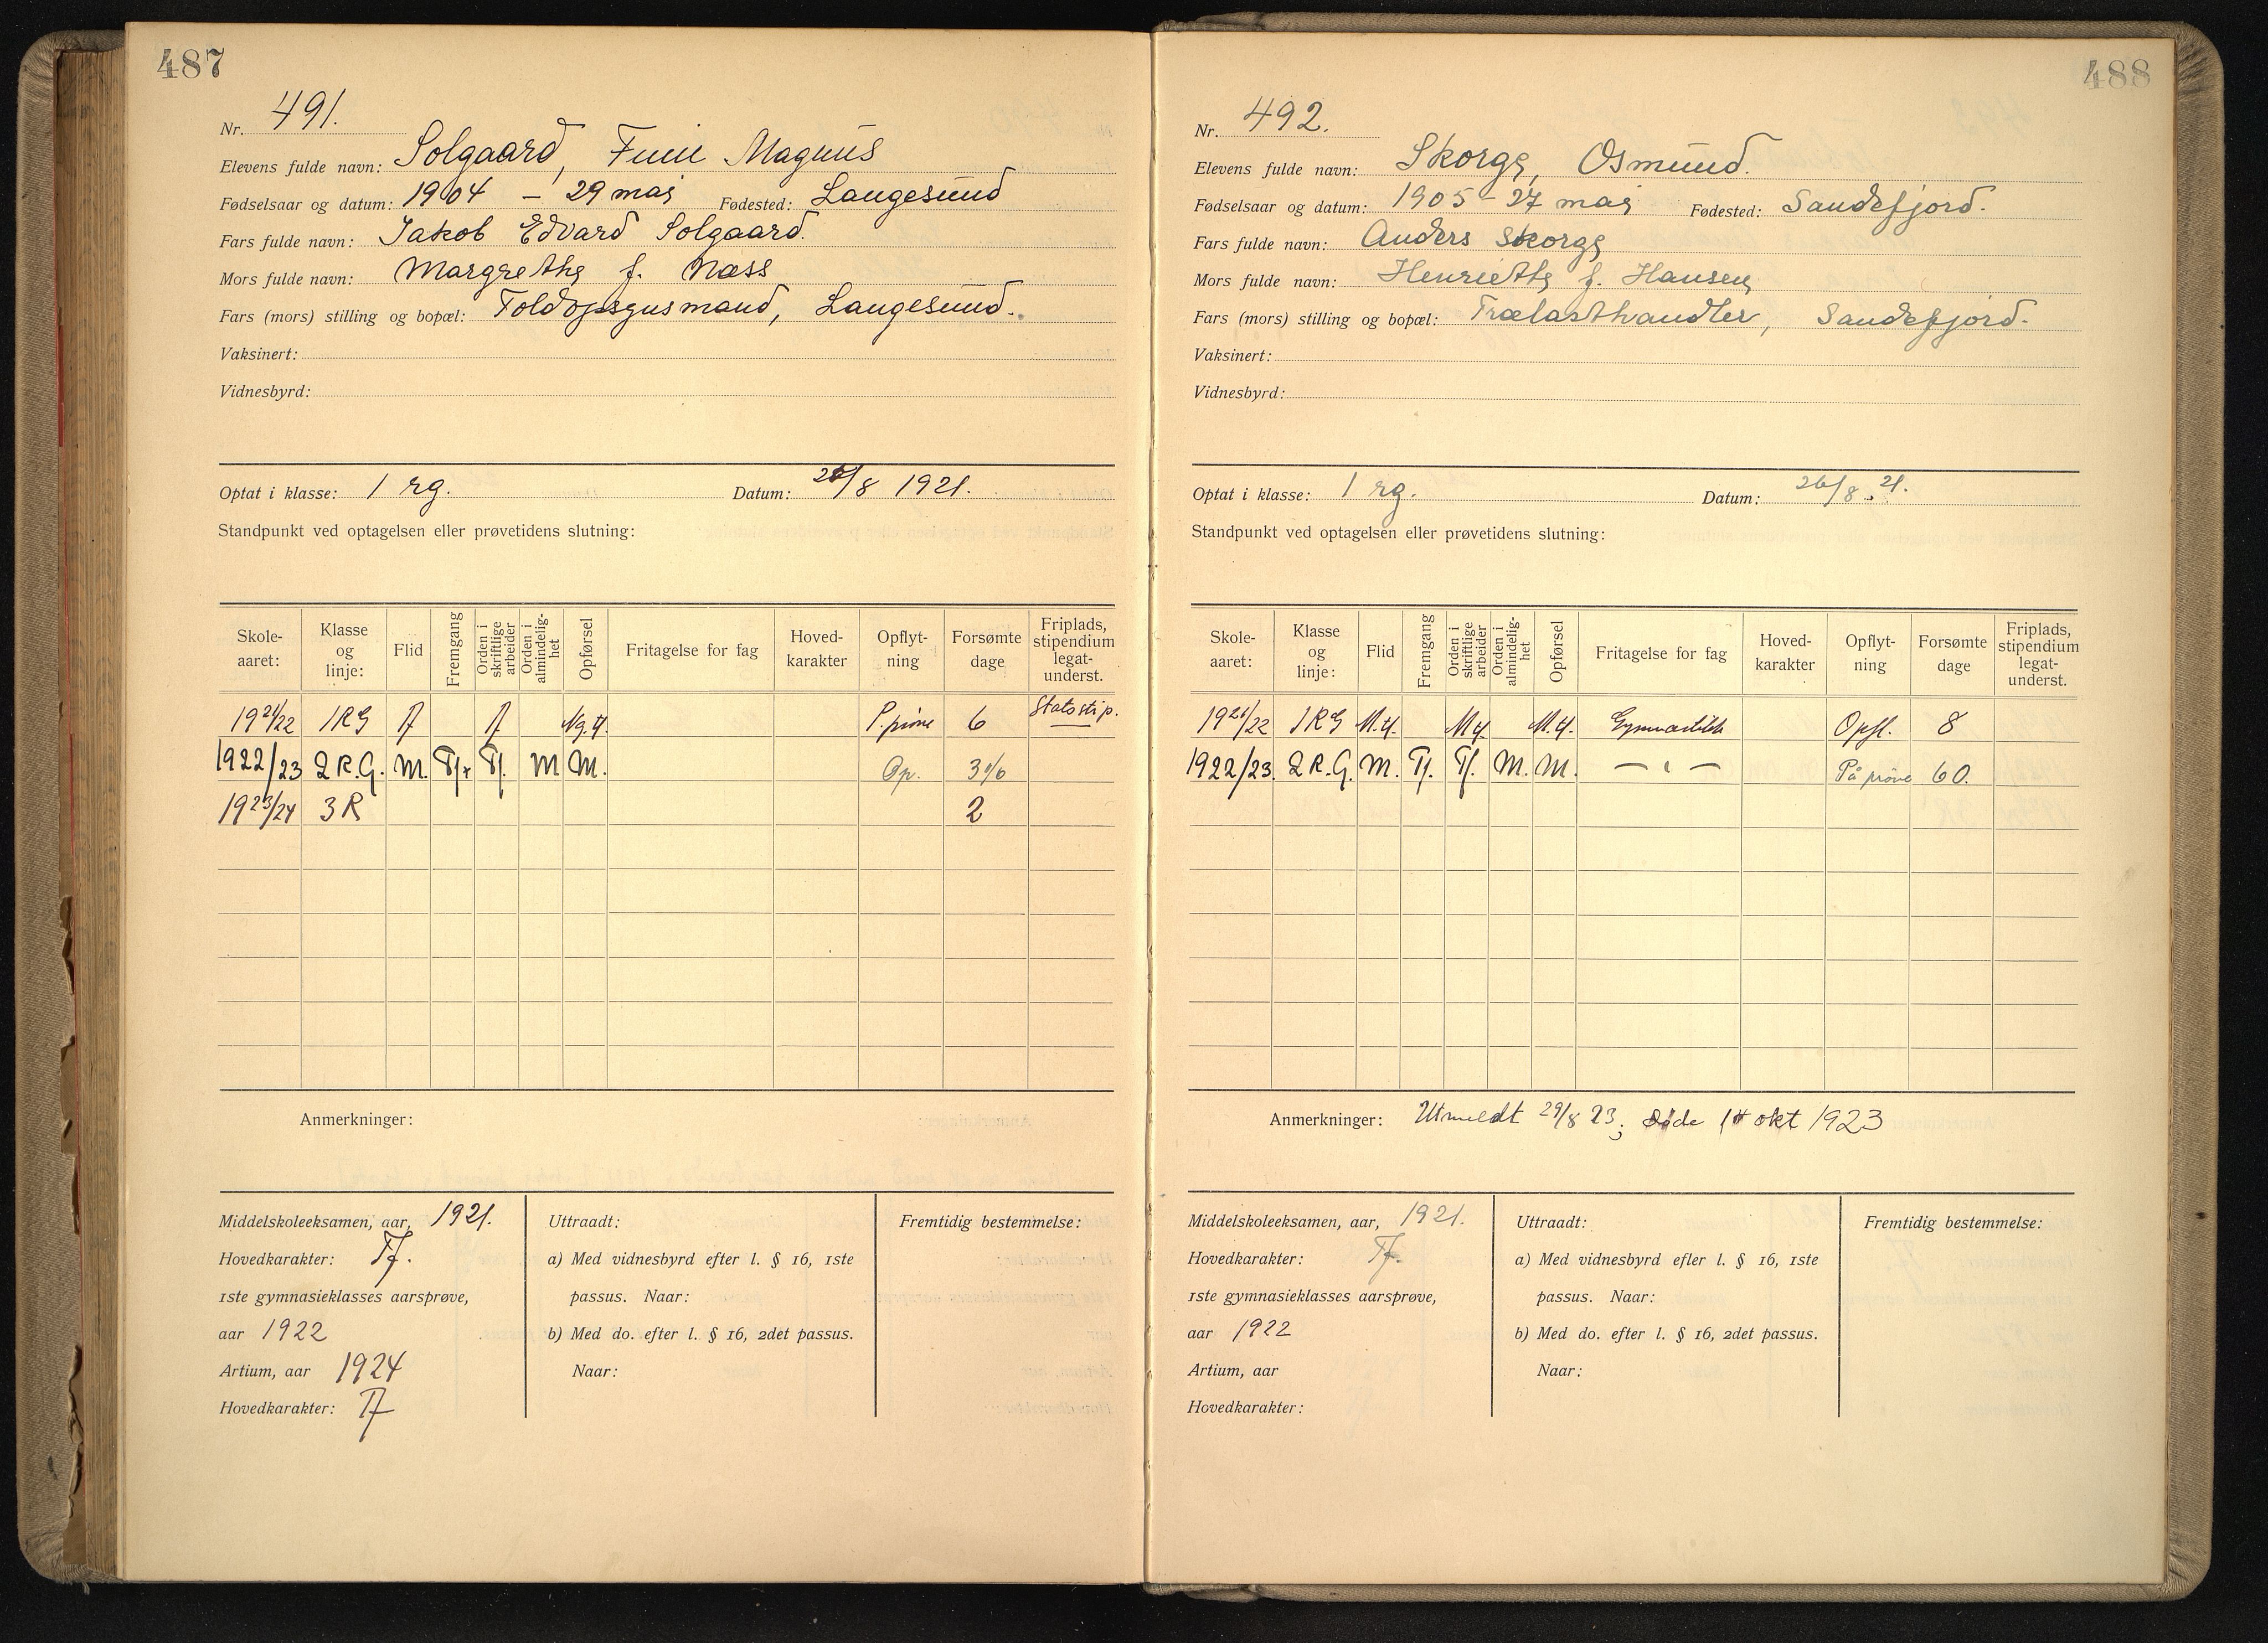 487
Nr. 491.
Elevens fulde navn: Solgaard, Finn Magnus
Fødselsaar og datum: 1904 - 29 mai Fødested: Langesund
Fars fulde navn: Jakob Edvard Solgaard.
Mors fulde navn: Margrethe f. Næss
Fars (mors) stilling og bopæl: Toldopsynsmand, Langesund.
Vaksinert:
Vidnesbyrd:
Optat i klasse: 1 rg. Datum: 26/8 1921.
Standpunkt ved optagelsen eller prøvetidens slutning:
Skole-aaret: Klasse og linje: Flid Fremgang Orden i skriftlige arbeider Orden i almindelig-het Opførsel Fritagelse for fag Hoved-karakter Opflyt-ning Forsømte dage Friplads, stipendium legat-underst.
1921/22 1RG T T Ng.t. P. prøve 6 Statsstip.
1922/23 2 R.G. M. Tf+ Tf. M M. Op. 3
1923/24 3 R 2
Anmerkninger:
Middelskoleeksamen, aar, 1921.
Hovedkarakter: Tf.
1ste gymnasieklasses aarsprøve,
aar 1922
Artium, aar 1924
Hovedkarakter: Tf
Uttraadt:
a) Med vidnesbyrd efter l. § 16, 1ste
passus. Naar:
b) Med do. efter l. § 16, 2det passus.
Naar:
Fremtidig bestemmelse:
488
Nr. 492.
Elevens fulde navn: Skorge, Osmund.
Fødselsaar og datum: 1905 - 27 mai Fødested: Sandefjord.
Fars fulde navn: Anders Skorge
Mors fulde navn: Henriette f. Hansen
Fars (mors) stilling og bopæl: Trælasthandler, Sandefjord.
Vaksinert:
Vidnesbyrd:
Optat i klasse: 1 rg. Datum: 26/8 - 21.
Standpunkt ved optagelsen eller prøvetidens slutning:
Skole-aaret: Klasse og linje: Flid Fremgang Orden i skriftlige arbeider Orden i almindelig-het Opførsel Fritagelse for fag Hoved-karakter Opflyt-ning Forsømte dage Friplads, stipendium legat-underst.
1921/22 1RG M.t. M.t. M.t. Gymnastikk Opfl. 8
1922/23. 2 R.G. M. Tf. Tf. M. M. — " — På prøve 60.
Anmerkninger: Utmeldt 29/8 23; døde 14 okt 1923
Middelskoleeksamen, aar, 1921.
Hovedkarakter: Tf.
1ste gymnasieklasses aarsprøve,
aar 1922
Artium, aar
Hovedkarakter:
Uttraadt:
a) Med vidnesbyrd efler l. § 16, 1ste
passus. Naar:
b) Med do. efter l. § 16, 2det passus.
Naar:
Fremtidig bestemmelse: